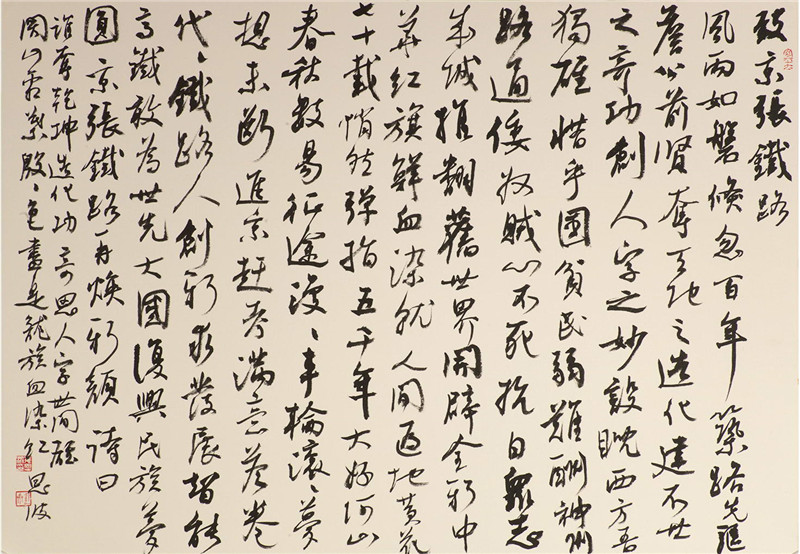 京張鐵路
風雨如磐倏忽百年築路先驅
詹公前賢奪天地之造化建不世
之奇功創人字之妙設睨西方吾
獨雄惜乎國貧民弱難酬神州
路通倭奴賊心不死抗日眾志
成城推翻舊世界開辟全新中
華紅旗鮮血染就人間遍地黃花
七十載悄然彈指五千年大好河山
春秋數易征途漫々車輪滾々夢
想未斷進京趕考滿意答卷
代々鐵路人創新求發展智能
高鐵敢為世先大國復興民族夢
圓京張鐵路再煥新顏詩曰
誰奪乾坤造化功奇思人字世間雄
關山霜葉殷々色盡是龍族血染紅 思波